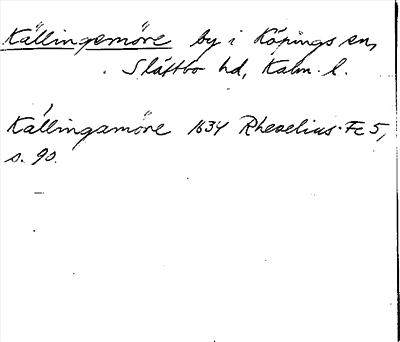 Källingemöre by i Köpings sn,
Slättbo hd, Kalm. l.
Källingamöre 1634 Rhezelius Fc 5,
s. 90.